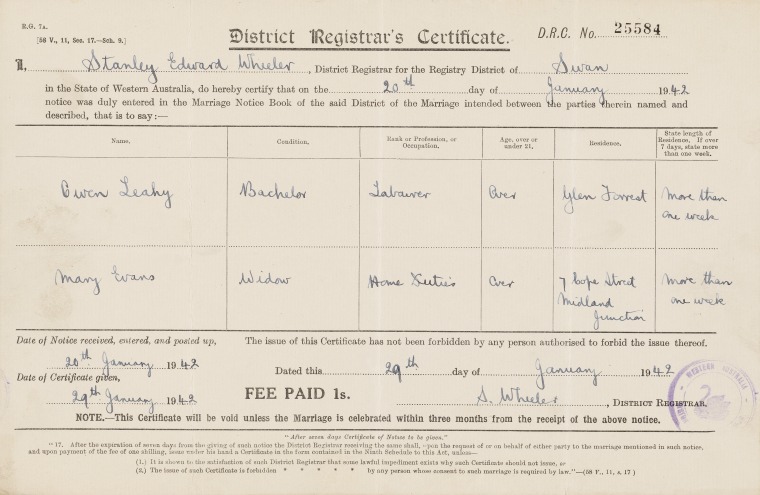 R.G. 7a.
[58 V., 11, Sec. 17.—Sch. 9.]
District Registrar's Certificate.
D.R.C. No. 25584
I, Stanley Edward Wheeler, District Registrar for the Registry District of Swan
in the State of Western Australia, do hereby certify that on the 20th day of January 1942
notice was duly entered in the Marriage Notice Book of the said District of the Marriage intended between the parties therein named and
described, that is to say:—
Name. Condition. Rank or Profession, or Occupation. Age, over or under 21. Residence. State length of Residence. If over 7 days, state more than one week.
Owen Leahy Bachelor Labourer Over Glen Forrest more than
one week
Mary Evans Widow Home Duties Over 7 Cope Street more than
Midland one week
Junction
Date of Notice received, entered, and posted up, The issue of this Certificate has not been forbidden by any person authorised to forbid the issue thereof.
20th January 1942
Dated this 29th day of January 1942
Date of Certificate given,
29th January 1942 FEE PAID 1s. S. Wheeler, DISTRICT REGISTRAR.
NOTE.—This Certificate will be void unless the Marriage is celebrated within three months from the receipt of the above notice.
"After seven days Certificate of Notice to be given."
"17. After the expiration of seven days from the giving of such notice the District Registrar receiving the same shall, upon the request of or on behalf of either party to the marriage mentioned in such notice,
and upon payment of the fee of one shilling, issue under his hand a Certificate in the form contained in the Ninth Schedule to this Act, unless—
(1.) It is shown to the satisfaction of such District Registrar that some lawful impediment exists why such Certificate should not issue, or
(2.) The issue of such Certificate is forbidden * * * * * by any person whose consent to such marriage is required by law."—(58 V., 11, s. 17 )
WESTERN AUSTRALIA